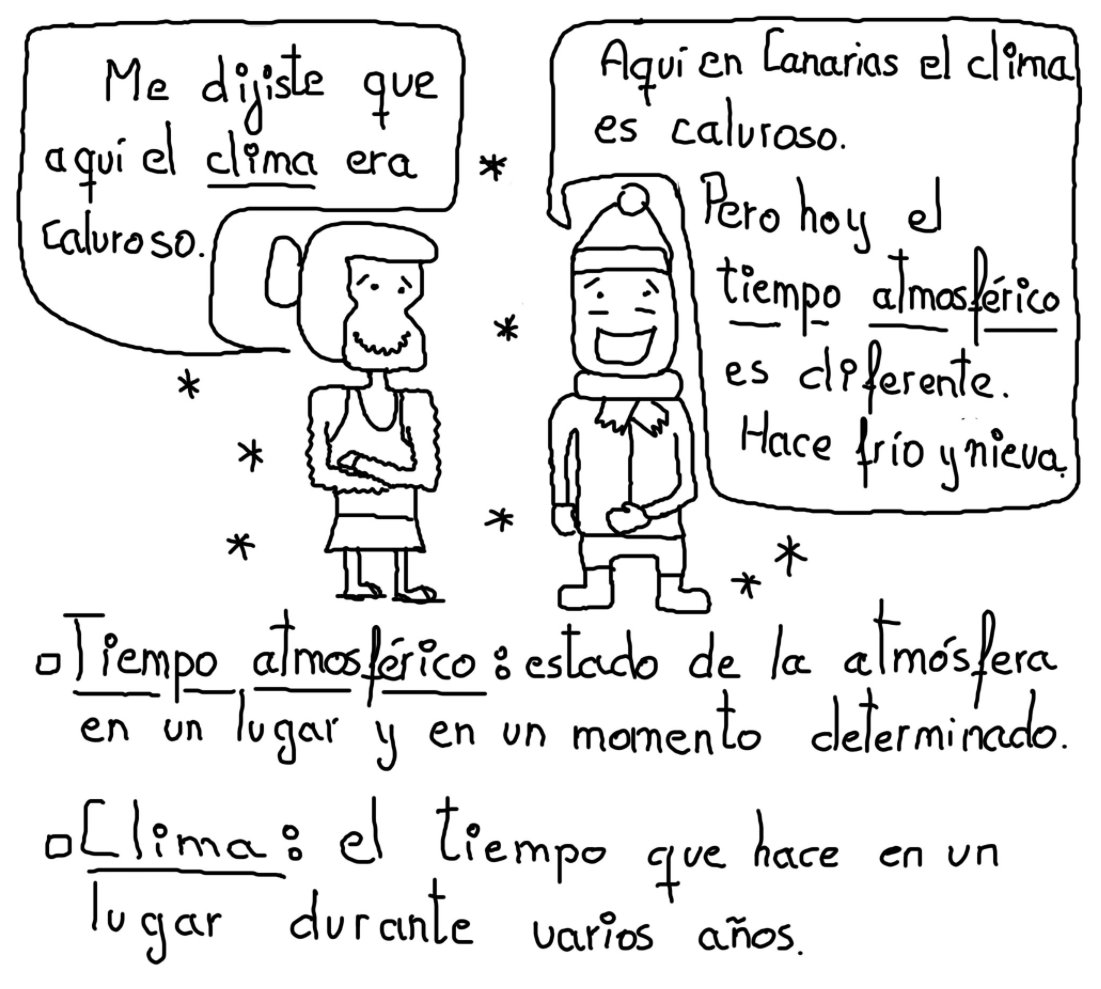 Me dijiste que
aquí el clima era
caluroso.
Aquí en Canarias el clima
es caluroso.
Pero hoy el
tiempo atmosférico
es diferente.
Hace frío y nieva.
Tiempo atmosférico: estado de la atmósfera
en un lugar y en un momento determinado.
Clima: el tiempo que hace en un
lugar durante varios años.